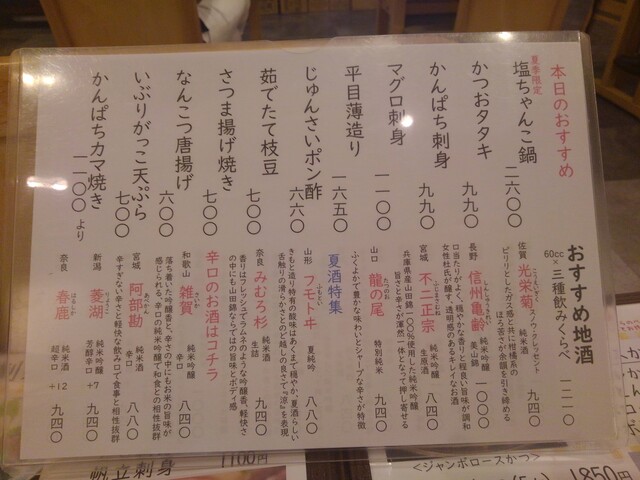 本日のおすすめ
夏季限定
塩ちゃんこ鍋 二六〇〇
かつおタタキ 九九〇
かんぱち刺身 九九〇
マグロ刺身 一一〇〇
平目薄造り 一六五〇
じゅんさいポン酢 六六〇
茹でたて枝豆 七〇〇
さつま揚げ焼き 七〇〇
なんこつ唐揚げ 六〇〇
いぶりがっこ天ぷら 七〇〇
かんぱちカマ焼き 一一〇〇より
おすすめ地酒
60cc×三種飲みくらべ 一二一〇
佐賀 光栄菊 スノウ・クレッセント 純米酒 九四〇
ピリリとしたガス感と共に柑橘系の
ほろ苦さが余韻を引き締める
長野 信州亀齢 純米吟醸 美山錦 一〇〇〇
口当たりがよく、穏やかな香りと程良い旨味が調和
女性杜氏が醸す、透明感のあるキレイなお酒
宮城 不二正宗 純米吟醸 生原酒 八四〇
兵庫県産山田錦一〇〇%使用した純米吟醸
旨さと辛さが渾然一体となって押し寄せる
山口 龍の尾 たつのお 特別純米 九四〇
ふくよかで豊かな味わいとシャープな辛さが特徴
夏酒特集
山形 フモトヰ ふもとゐ 夏純吟 八八〇
きもと造り特有の酸味はあくまで穏やか。夏酒らしい
舌触りの滑らかさとのど越しの良さで『涼』を表現
奈良 みむろ杉 純米酒 生詰 九四〇
香りはフレッシュでラムネのような吟醸香、軽快さ
の中にも山田錦ならではの旨味とボディ感
辛口のお酒はコチラ
和歌山 雑賀 さいか 純米吟醸 辛口 八四〇
落ち着いた吟醸香と、辛さの中にもお米の旨味が
感じられる。辛口の純米吟醸で和食との相性抜群
宮城 阿部勘 あべかん 純米酒 辛口 八八〇
辛すぎない辛さと軽快な飲み口で食事と相性抜群
新潟 菱湖 りょうこ 純米吟醸 芳醇辛口 +7 九四〇
奈良 春鹿 はるしか 純米酒 超辛口 +12 九四〇
帆立刺身 1100円
<ジャンボロースかつ>
1,850円